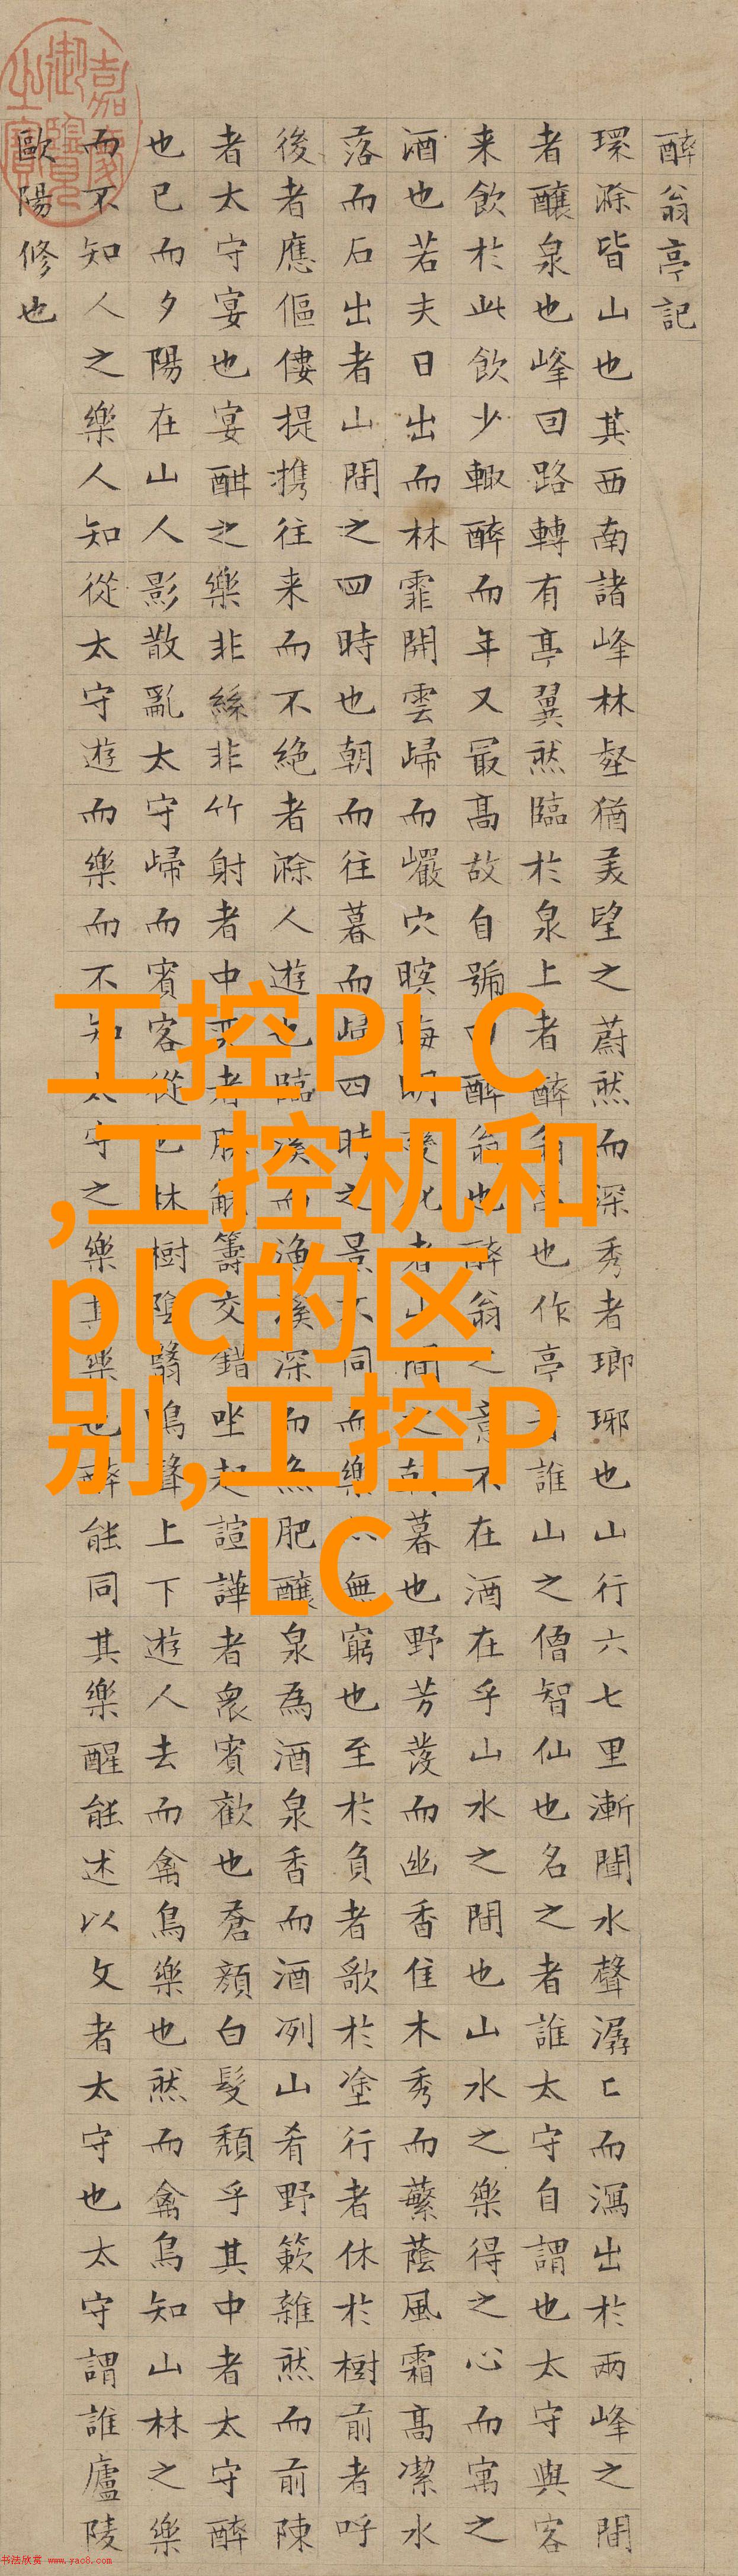 醉翁亭記
環滁皆山也其西南諸峰林壑猶美望之蔚然而深秀者瑯琊也山行六七里漸聞水聲潺〻而瀉出於兩峰之間
者釀泉也峰回路轉有亭翼然臨於泉上者醉翁亭也作亭者誰山之僧智仙也名之者誰太守自謂也太守與客
来飲於此飲少輙醉而年又最高故自號曰醉翁也醉翁之意不在酒在乎山水之間也山水之樂得之心而寓之
酒也若夫日出而林霏開雲歸而巖穴暝晦明變化者山間之朝暮也野芳發而幽香佳木秀而蘩蔭風霜高潔水
落而石出者山間之四時也朝而往暮而歸四時之景不同而樂亦無窮也至於負者歌於塗行者休於樹前者呼
後者應傴僂提携往来而不絕者滁人遊也臨溪而漁溪深而魚肥釀泉為酒泉香而酒冽山肴野簌雜然而前陳
者太守宴也宴酣之樂非絲非竹射者中弈者勝觥籌交錯坐起諠譁者衆賓歡也蒼顏白髮頹乎其中者太守醉
也已而夕陽在山人影散亂太守歸而賓客從也林樹陰翳鳴聲上下遊人去而禽鳥樂也然而禽鳥知山林之樂
而不知人之樂人知從太守遊而樂而不知太守之樂其樂也醉能同其樂醒能述以文者太守也太守謂誰廬陵
歐陽修也
嘉慶御覽之寶
工控PLC
,工控机和
plc的区
别,工控P
LC
书法欣赏 www.yac8.com